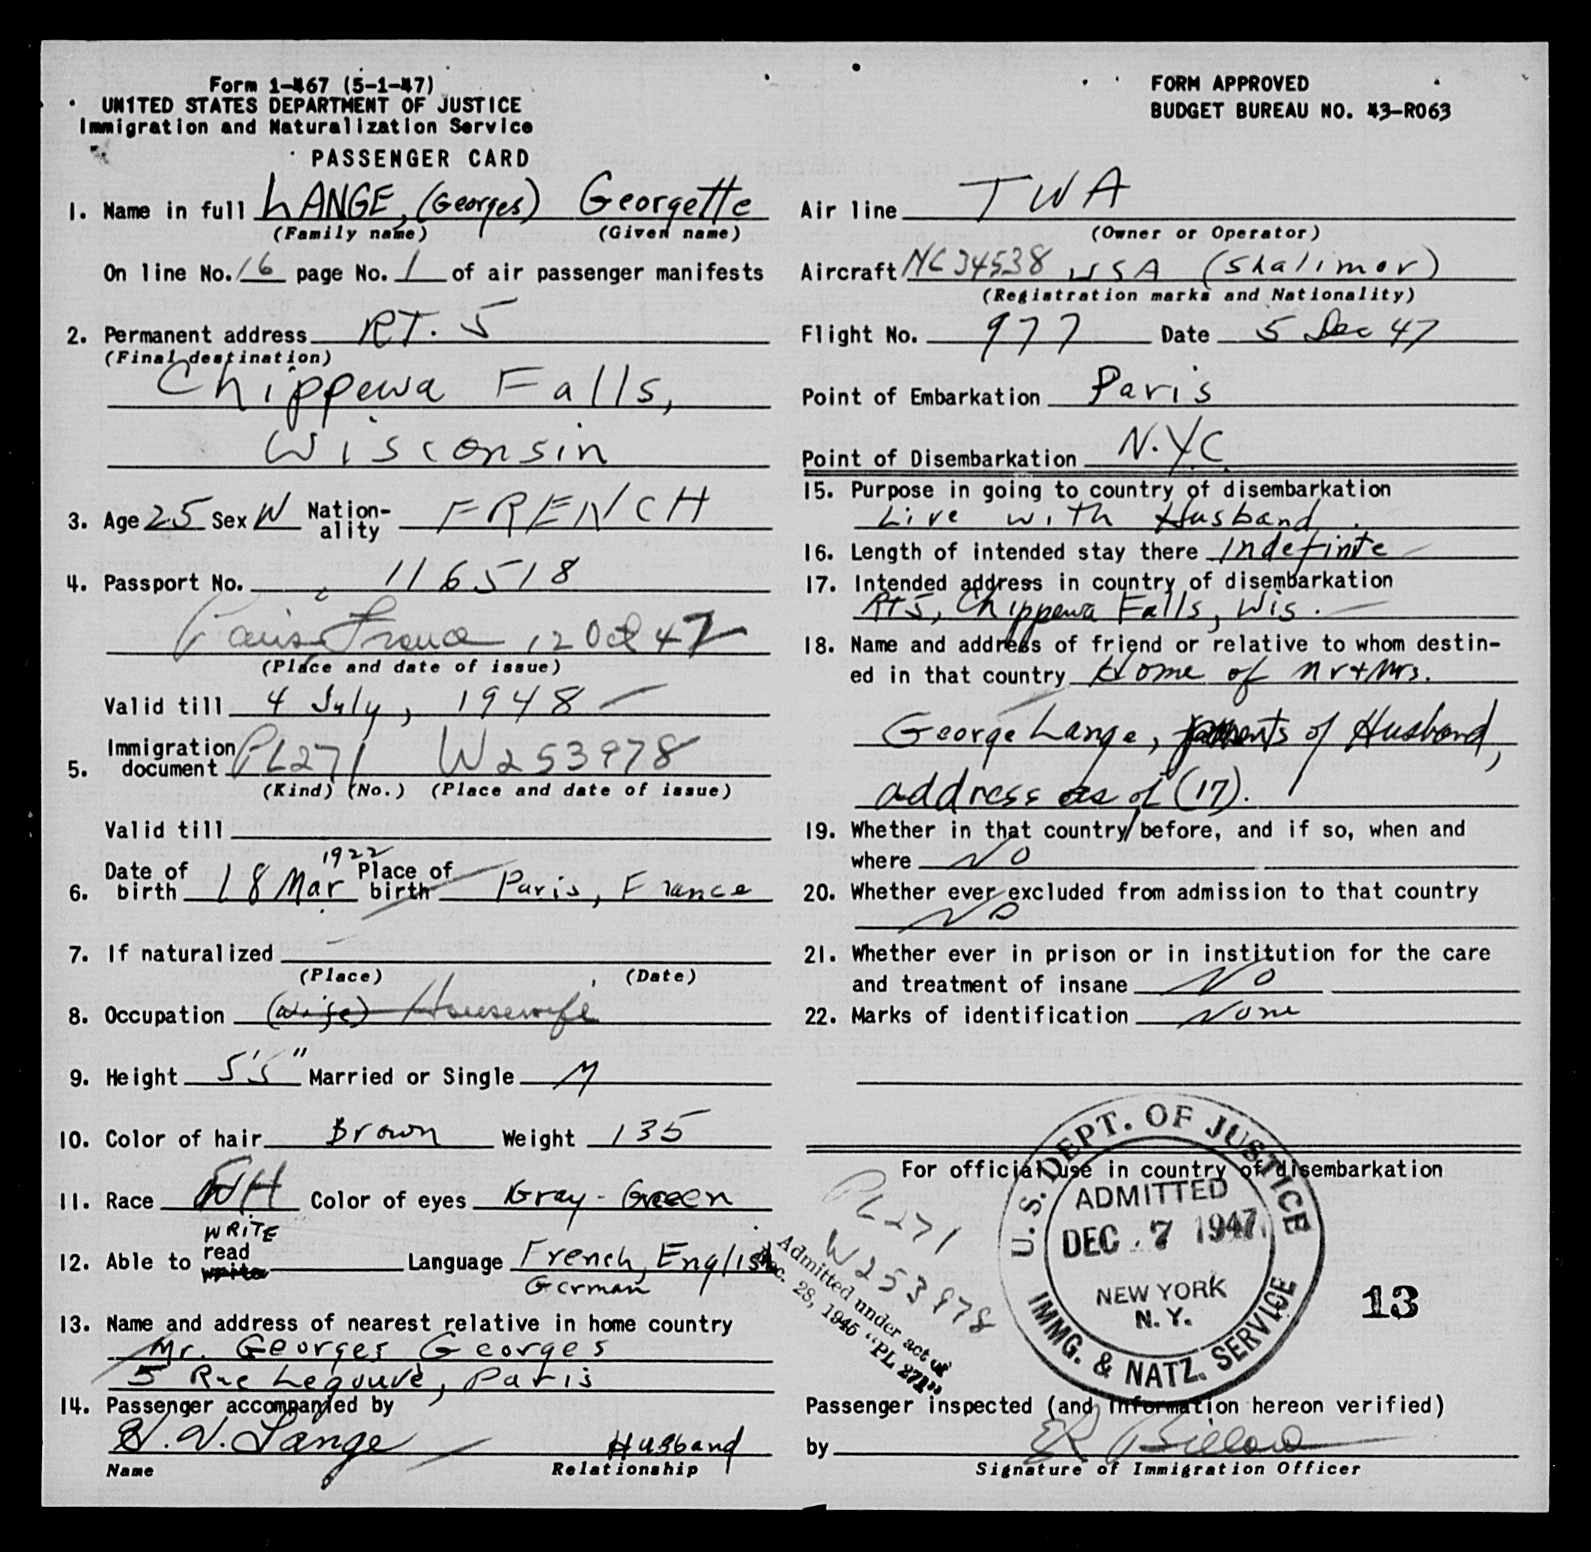 Form 1-467 (5-1-47)
UNITED STATES DEPARTMENT OF JUSTICE
Immigration and Naturalization Service
PASSENGER CARD
1. Name in full LANGE, (Georges) Georgette
(Family name) (Given name)
On line No. 16 page No. 1 of air passenger manifests
2. Permanent address RT. 5
(Final destination)
Chippewa Falls,
Wisconsin
3. Age 25 Sex W Nation-ality FRENCH
4. Passport No. 116518
Paris France 12 Oct 47
(Place and date of issue)
Valid till 4 July, 1948
5. Immigration document PL271 W253978
(Kind) (No.) (Place and date of issue)
Valid till
6. Date of birth 18 Mar 1922 Place of birth Paris, France
7. If naturalized
(Place) (Date)
8. Occupation (wife) Housewife
9. Height 5'5" Married or Single M
10. Color of hair Brown Weight 135
11. Race WH Color of eyes Gray-Green
WRITE
12. Able to read write Language French, English
German
13. Name and address of nearest relative in home country
Mr. Georges Georges
5 Rue Legouvé, Paris
14. Passenger accompanied by
H.V. Lange Husband
Name Relationship
FORM APPROVED
BUDGET BUREAU NO. 43-R063
Air line TWA
(Owner or Operator)
Aircraft NC34538 USA (Shalimar)
(Registration marks and Nationality)
Flight No. 977 Date 5 Dec 47
Point of Embarkation Paris
Point of Disembarkation N.Y.C.
15. Purpose in going to country of disembarkation
Live with Husband.
16. Length of intended stay there Indefinite
17. Intended address in country of disembarkation
Rt 5, Chippewa Falls, Wis.
18. Name and address of friend or relative to whom destin-
ed in that country Home of Mr + Mrs.
George Lange, parents of Husband,
address as of (17).
19. Whether in that country before, and if so, when and
where No
20. Whether ever excluded from admission to that country
No
21. Whether ever in prison or in institution for the care
and treatment of insane No
22. Marks of identification None
For official use in country of disembarkation
PL271
W253978
Admitted under act of
Dec. 28, 1945 "PL 271"
U.S. DEPT. OF JUSTICE
ADMITTED
DEC 7 1947
NEW YORK
N.Y.
IMMG. & NATZ. SERVICE
13
Passenger inspected (and information hereon verified)
by
Signature of Immigration Officer